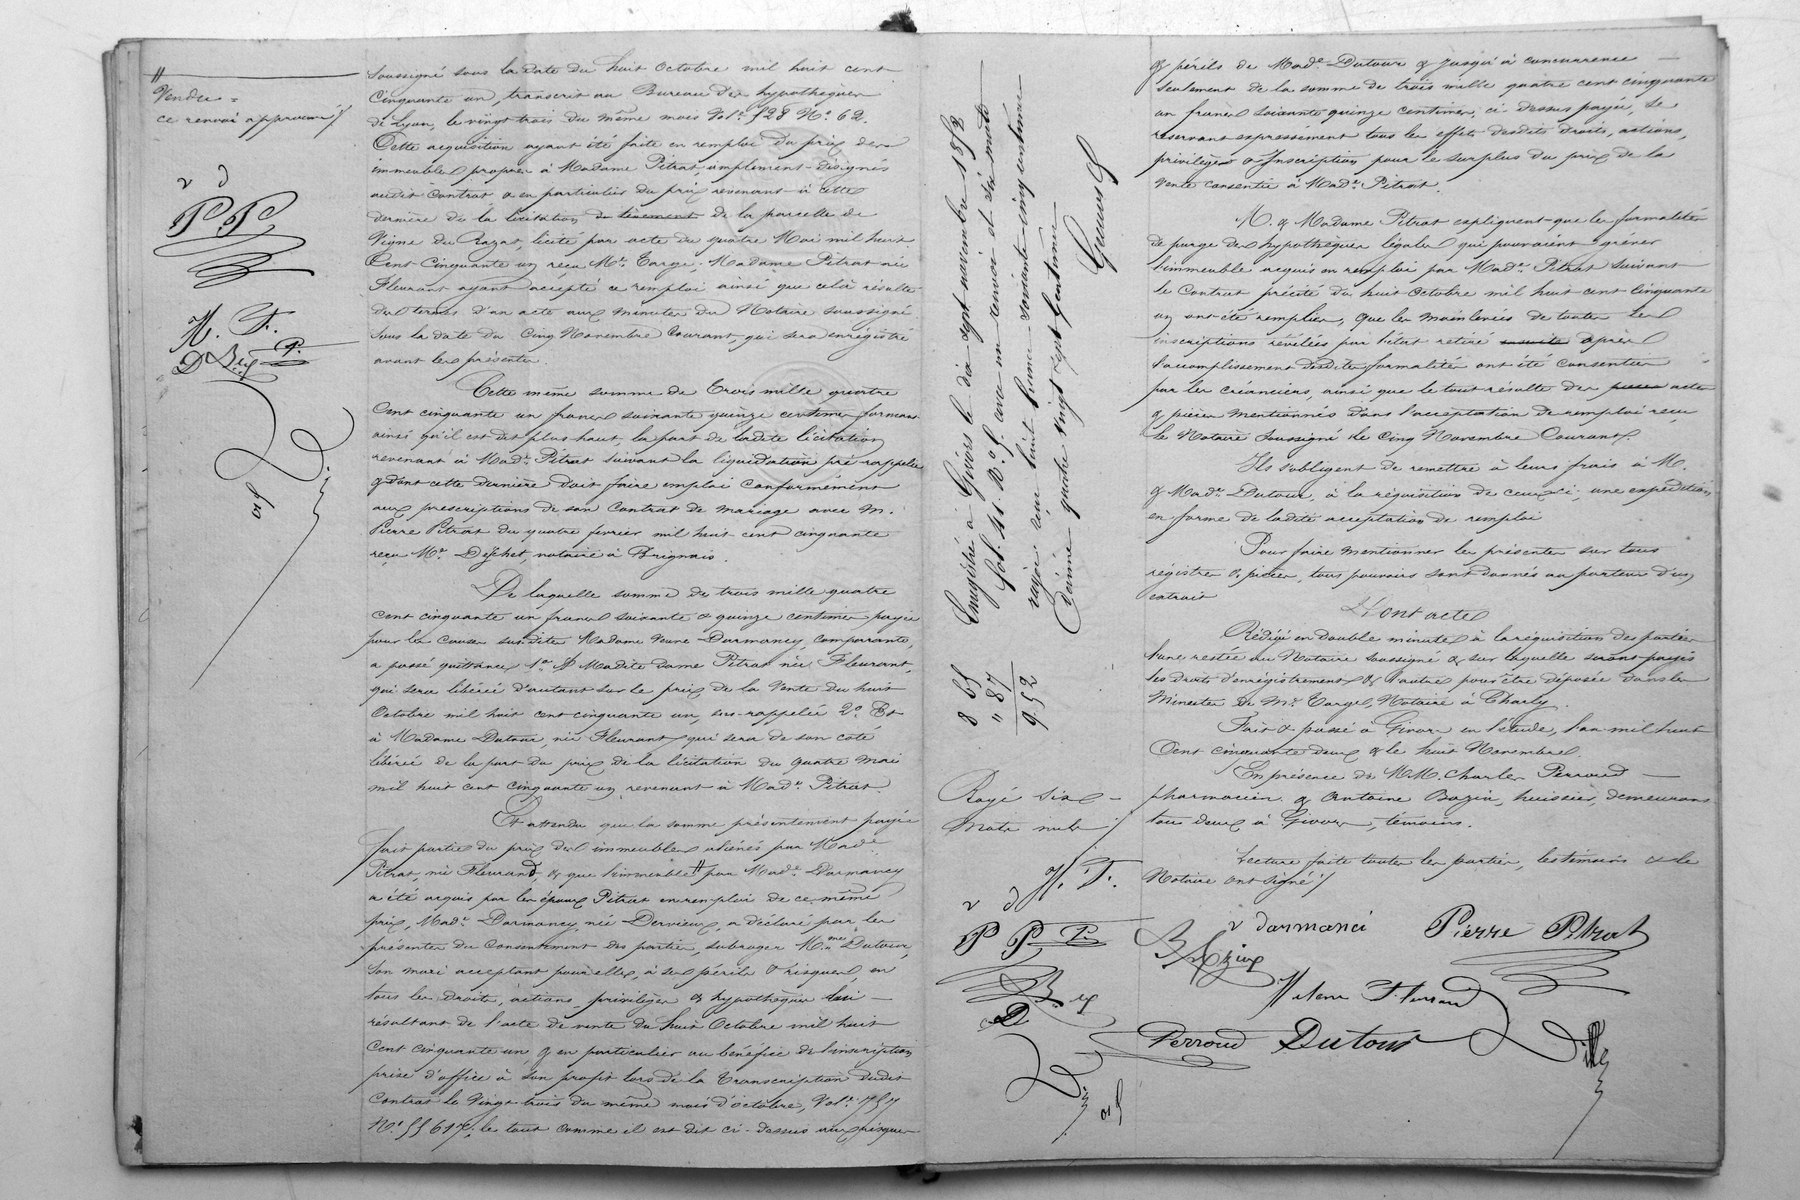 Vendu =
ce renvoi approuvé
v d
P P
H. F.
P.
D
soussigné sous la date du huit Octobre mil huit cent
Cinquante un, transcrit au Bureau des hypothèques
de Lyon, le vingt trois du même mois Vol. 528 N° 62.
Cette acquisition ayant été faite en remploi du prix des
immeubles propres à Madame Pétrat, amplement désignés
audit Contrat & en particulier du prix revenant à cette
dernière de la licitation de la parcelle de
Vigne du Razat, licité par acte du quatre Mai mil huit
Cent Cinquante un reçu Me. Targe, Madame Pétrat née
Fleurant ayant accepté ce remploi ainsi que cela résulte
des termes d'un acte aux minutes du Notaire soussigné
sous la date du Cinq Novembre Courant, qui sera enrégistré
avant les présentes.
Cette même somme de Trois mille quatre
Cent cinquante un francs soixante quinze centimes formant
ainsi qu'il est dit plus haut, la part de ladite licitation
revenant à Made. Pétrat suivant la liquidation pré rappelée
& dont cette dernière doit faire emploi Conformément
aux prescriptions de son Contrat de mariage avec M.
Pierre Pétrat du quatre février mil huit cent cinquante
reçu Me. notaire à Brignais.
De laquelle somme de trois mille quatre
cent cinquante un francs soixante & quinze centimes payée
pour les causes susdites Madame Veuve Darmancy, Comparante,
a passé quittance 1° à Madite dame Pétrat née Fleurant,
qui sera libérée d'autant sur le prix de la Vente du huit
Octobre mil huit cent cinquante un, sus-rappelée 2° Et
à Madame Dutour, née Fleurant qui sera de son côté
libérée de la part du prix de la licitation du quatre mai
mil huit cent cinquante un, revenant à Made. Pétrat.
Et attendu que la somme présentement payée
fait partie du prix des immeubles aliénés par Made.
Pétrat, née Fleurand, & que l'immeuble # par Made. Darmancy
a été acquis par les époux Pétrat en remploi de ce même
prix, Made. Darmancy, née Dervieux, a déclaré par les
présentes du Consentement des parties, subroger Mme. Dutour,
son mari acceptant pour elle, à ses périls & risques, en
tous les droits, actions privilèges & hypothèques
résultant de l'acte de vente du huit Octobre mil huit
Cent cinquante un & en particulier au bénéfice de l'inscription
prise d'office à son profit lors de la Transcription dudit
Contrat le Vingt trois du même mois d'octobre, Vol.
N° le tout comme il est dit ci-dessus aux risques
Enregistré à Givors le dix sept novembre 1852
fol. 41. R° 5. avec un renvoi et six mots
rayés, reçu huit francs soixante cinq centimes
Décime quatre vingt sept Centimes
8 65
" 87
9.52
Rayé six
mots nuls
H. F.
v d
P P P.
D
& périls de Made. Dutour & jusqu'à concurrence
seulement de la somme de trois mille quatre cent cinquante
un francs soixante quinze centimes, ci dessus payée, se
réservant expressément tous les effets desdits droits, actions,
privilèges & Inscription pour le surplus du prix de la
vente consentie à Made. Pétrat.
M. & Madame Pétrat expliquent que les formalités
de purge des hypothèques légales qui pouvaient gréver
l'immeuble acquis en remploi par Made. Pétrat suivant
le Contrat précité du huit Octobre mil huit cent Cinquante
un ont été remplies, que les mainlevées de toutes les
inscriptions révélées par l'état retiré après
l'accomplissement desdites formalités ont été consenties
par les créanciers, ainsi que le tout résulte des actes
& pièces mentionnés dans l'acceptation de remploi reçue
le Notaire soussigné le Cinq Novembre Courant.
Ils s'obligent de remettre à leurs frais à M.
& Made. Dutour, à la réquisition de ceux-ci, une expédition
en forme de ladite acceptation de remploi
Pour faire mentionner les présentes sur tous
régistres & pièces, tous pouvoirs sont donnés au porteur d'un
extrait
Dont acte
Rédigé en Double minute à la réquisition des parties
l'une restée au Notaire soussigné & sur laquelle seront payés
les droits d'enregistrement & l'autre pour être déposée dans les
Minutes de Me. Targe, Notaire à Charly.
Fait & passé à Givors en l'étude, l'an mil huit
Cent cinquante deux & le huit Novembre
En présence de M.M. Charles Perroud
pharmacien & Antoine Bazin, huissier, demeurant
tous deux à Givors, témoins.
Lecture faite toutes les parties, les témoins & le
Notaire ont signé
v darmanci Pierre Pétrat
Perroud Dutour